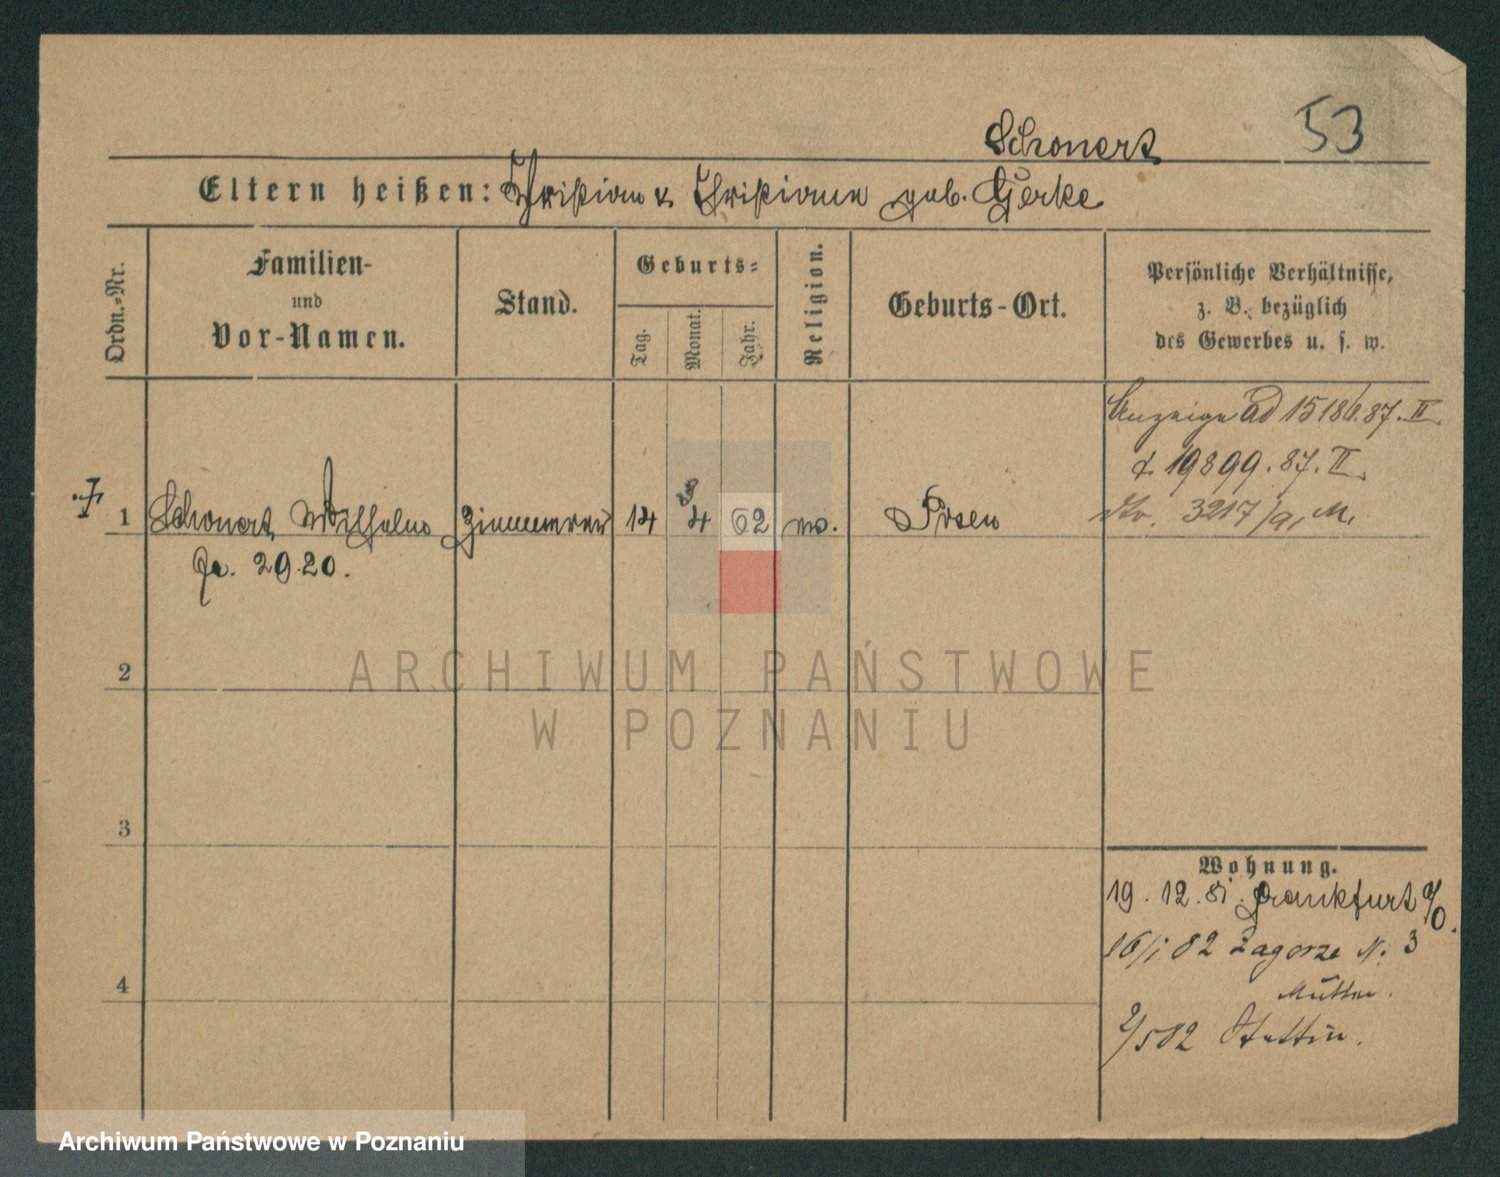 Schonert 53
Eltern heißen: Christian & Christiane geb. Gerke
Ordn.-Nr.
Familien-
und
Vor-Namen.
Stand.
Geburts-
Tag.
Monat.
Jahr.
Religion.
Geburts-Ort.
Persönliche Verhältnisse,
z. B. bezüglich
des Gewerbes u. s. w.
Anzeige ad 15186.87.II
& 19899.87.II
3217/
1 Schonert, Wilhelm Zimmerer 14 4 62 Posen
3
29.20.
2
3
4
Wohnung.
19.12.81. Frankfurt a/O.
16/1 82 Zagorze N. 3
Mutter.
2/5 82 Stettin.
ARCHIWUM PAŃSTWOWE
W POZNANIU
Archiwum Państwowe w Poznaniu